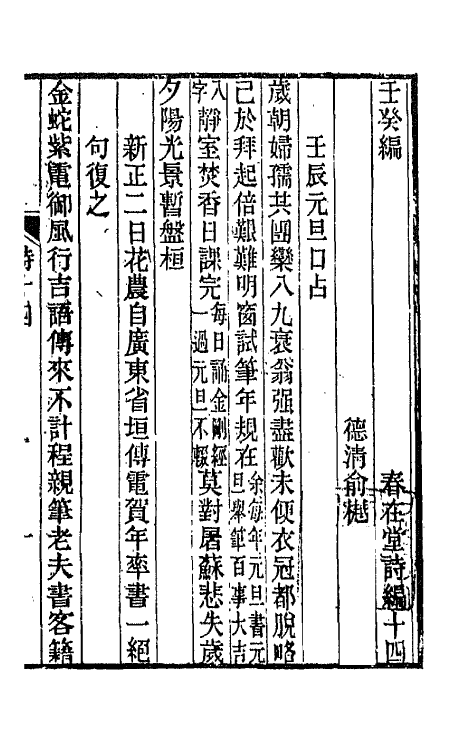 壬癸編　春在堂詩編十四
德清俞樾
壬辰元旦口占
歲朝婦孺共團欒八九衰翁强盡歡未便衣冠都脫略
已於拜起倍艱難明窗試筆年規在余每年元旦書元旦舉筆百事大吉
八字靜室焚香日課完每日誦金剛經一過元旦不輟莫對屠蘇悲失歲
夕陽光景暫盤桓
新正二日花農自廣東省垣傳電賀年率書一絕
句復之
金蛇紫電御風行吉語傳來不計程親筆老夫書客籍
詩十四
一